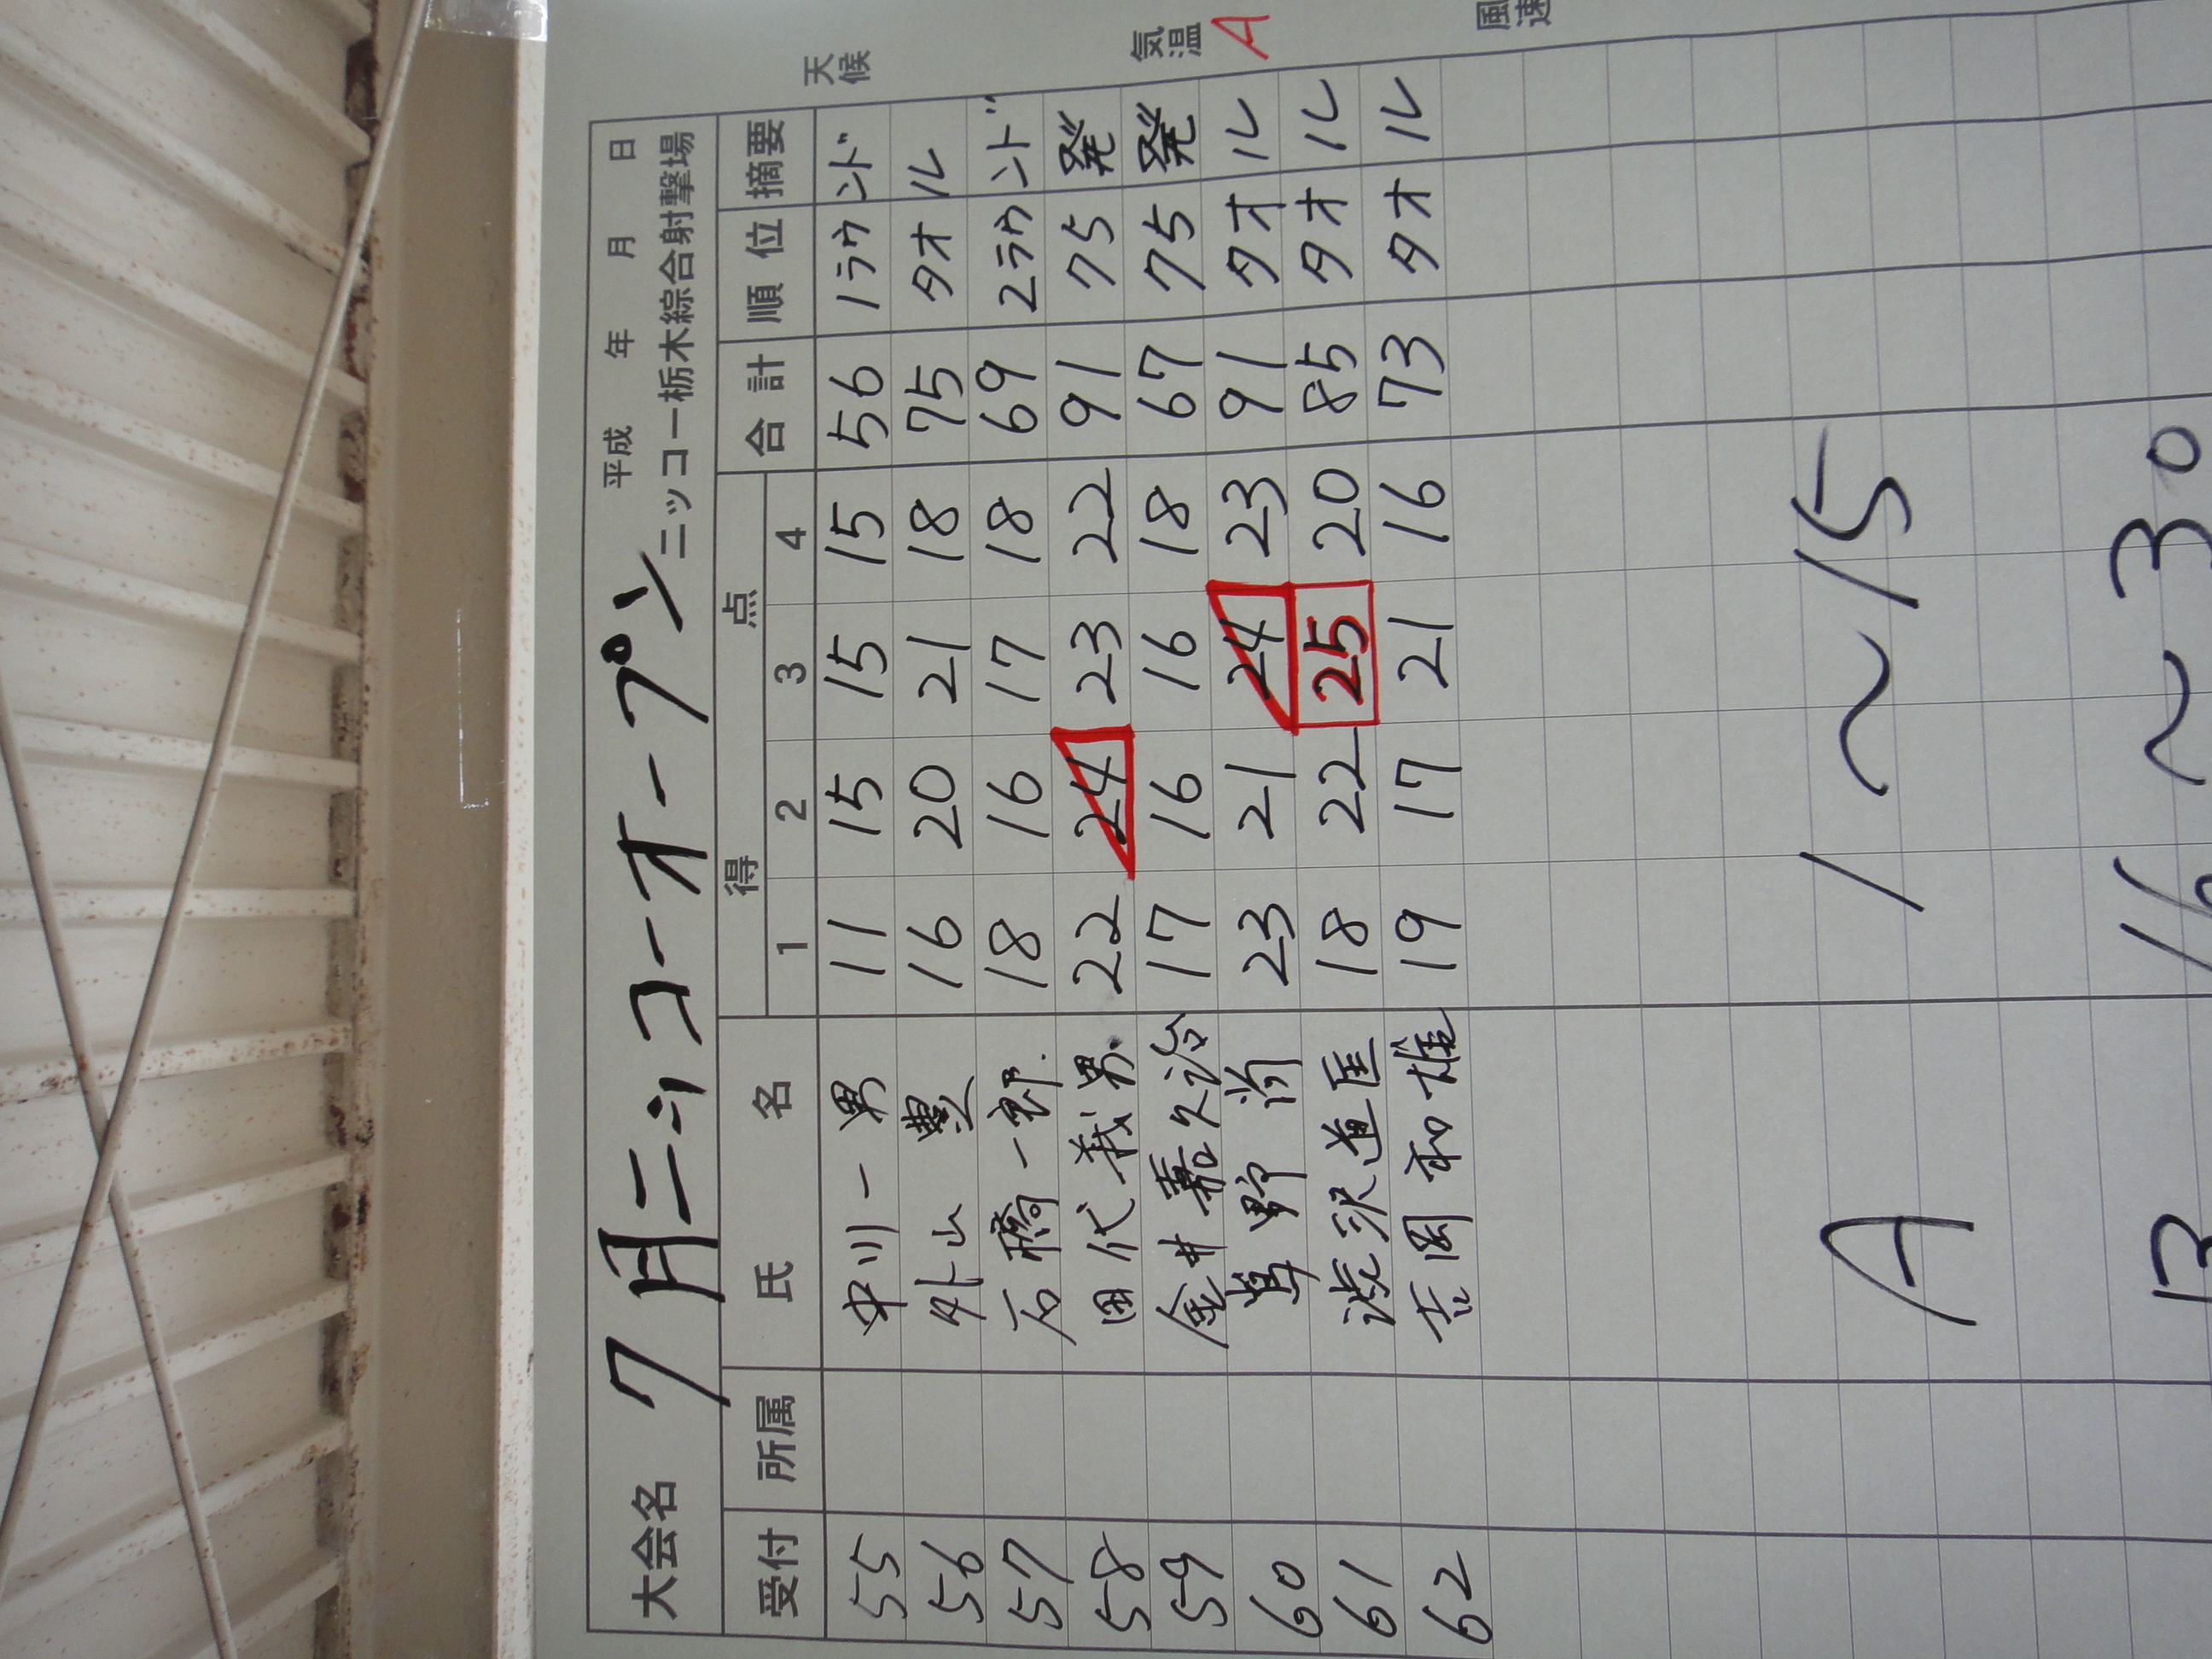 天候 気温 A 風速
大会名 7月ニッコーオープン 平成 年 月 日
ニッコー栃木綜合射撃場
受付 所属 氏名 得点 合計 順位 摘要
1 2 3 4
55 中川一男 11 15 15 15 56 1ラウンド
56 外山 豊 16 20 21 18 75 タオル
57 石橋一郎 18 16 17 18 69 2ラウンド
58 田代義男 22 24 23 22 91 75発
59 金井嘉久治 17 16 16 18 67 75発
60 草野 23 21 24 23 91 タオル
61 滝沢道匡 18 22 25 20 85 タオル
62 吉岡和雄 19 17 21 16 73 タオル
A 1~15
B 16~30